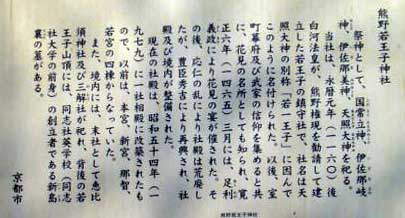 熊野若王子神社
祭神として、国常立神、伊佐那岐
神、伊佐那美神、天照大神を祀る。
当社は、永暦元年(一一六〇)後
白河法皇が、熊野権現を勧請して建
立した若王子の鎮守社で、社名は天
照大神の別称「若一王子」に因んで
このように名付けられた。以後、室
町幕府及び武家の信仰を集めると共
に、花見の名所としても知られ、寛
正六年(一四六五)三月には、足利
義政により花見の宴が催された。そ
の後、応仁の乱により社殿は荒廃し
たが、豊臣秀吉により再興され、社
殿及び境内が整備された。
現在の社殿は、昭和五十四年(一
九七九)に一社相殿に改築されたも
ので、以前は、本宮、新宮、那智、
若宮の四棟からなっていた。
また、境内には、末社として恵比
須神社及び三解社が祀れ、背後の若
王子山頂には、同志社英学校(同志
社大学の前身)の創立者である新島
襄の墓がある。
京都市
熊野若王子神社